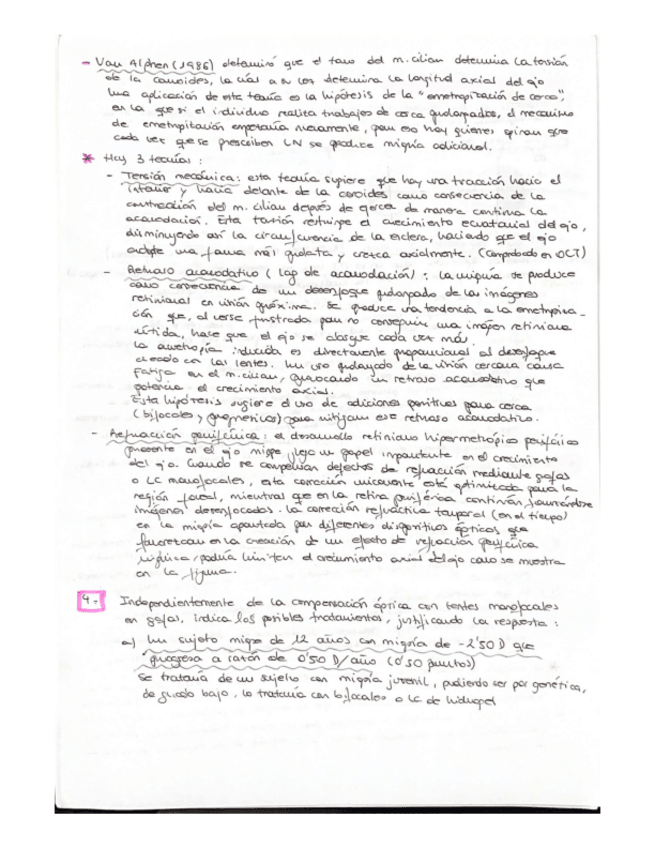 - Van Alphen (1986) determinó que el tono del m. ciliar determina la tensión
de la coroides, la cual a su vez determina la longitud axial del ojo
Una aplicación de esta teoría es la hipótesis de la "emetropización de cerca",
en la que si el individuo realiza trabajos de cerca prolongados, el mecanismo
de emetropización empezaría nuevamente, por eso hay quienes opinan que
cada vez que se prescriben LN se produce miopía adicional.
* Hay 3 teorías :
- Tensión mecánica: esta teoría sugiere que hay una tracción hacia el
interior y hacia delante de la coroides como consecuencia de la
contracción del m. ciliar después de ejercer de manera continua la
acomodación. Esta tensión restringe el crecimiento ecuatorial del ojo,
disminuyendo así la circunferencia de la esclera, haciendo que el ojo
adopte una forma más prolata y crezca axialmente. (Comprobado en OCT)
- Retraso acomodativo (lag de acomodación) : la miopía se produce
como consecuencia de un desenfoque prolongado de las imágenes
retinianas en visión próxima. Se produce una tendencia a la emetropiza-
ción que, al verse frustrada por no conseguir una imagen retiniana
nítida, hace que el ojo se alargue cada vez más.
La ametropía inducida es directamente proporcional al desenfoque
creado con las lentes. Un uso prolongado de la visión cercana causa
fatiga en el m. ciliar, provocando un retraso acomodativo que
potencia el crecimiento axial.
Esta hipótesis sugiere el uso de adiciones positivas para cerca
(bifocales y progresivos) para mitigar ese retraso acomodativo.
- Refracción periférica : el desarrollo retiniano hipermetrópico periférico
presente en el ojo miope juega un papel importante en el crecimiento
del ojo. Cuando se compensan defectos de refracción mediante gafas
o LC monofocales, esta corrección únicamente está optimizada para la
región foveal, mientras que en la retina periférica continúan formándose
imágenes desenfocadas. La corrección refractiva temporal (en el tiempo)
en la miopía aportada por diferentes dispositivos ópticos, que
favorezcan en la creación de un efecto de refracción periférica
miópica, podría limitar el crecimiento axial del ojo como se muestra
en la figura.
4.- Independientemente de la compensación óptica con lentes monofocales
en gafas, indica los posibles tratamientos, justificando la respuesta :
a) Un sujeto miope de 12 años con miopía de -2'50 D que
progresa a razón de 0'50 D/año (0'50 puntos)
Se trataría de un sujeto con miopía juvenil, pudiendo ser por genética,
de grado bajo, lo trataría con bifocales o LC de hidrogel